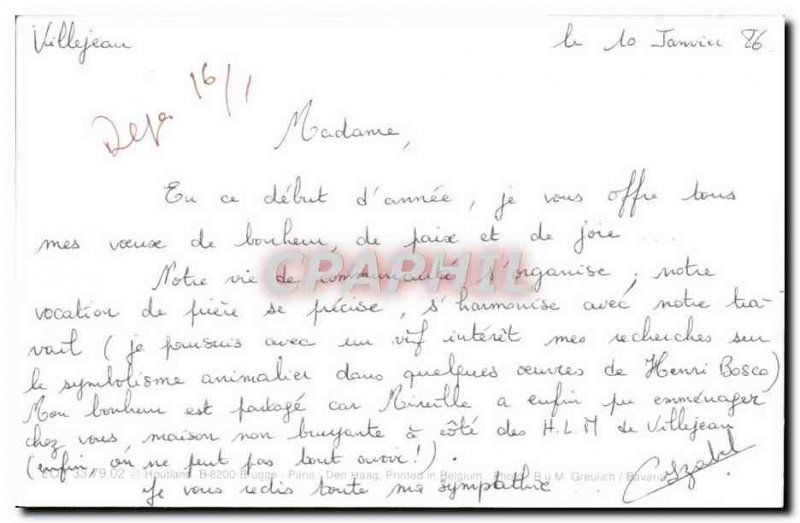 Villejean
le 10 Janvier 86
16/1
Madame,
En ce début d'année, je vous offre tous
mes vœux de bonheur, de paix et de joie...
Notre vie de communauté s'organise ; notre
vocation de prière se précise, s'harmonise avec notre tra-
vail (je poursuis avec un vif intérêt mes recherches sur
le symbolisme animalier dans quelques œuvres de Henri Bosco)
Mon bonheur est partagé car Mireille a enfin pu emménager
chez vous, maison non bruyante à côté des H.L.M de Villejean
(enfin, on ne peut pas tout avoir!).
ECL 35.79.02 © Houtland, B-8200 Brugge - Paris - Den Haag, Printed in Belgium - Photo: B.u.M. Greulich / Bavaria
Je vous redis toute ma sympathie...
CPAPHIL